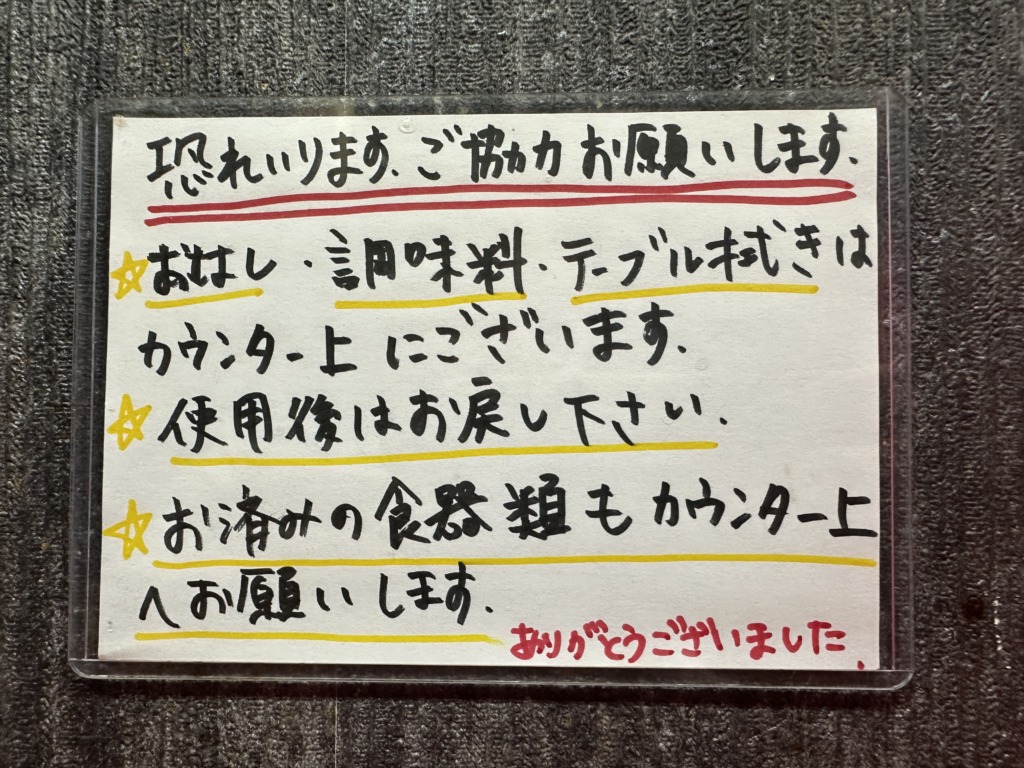 恐れいります、ご協力お願いします.
☆おはし・調味料・テーブル拭きは
カウンター上にございます.
☆使用後はお戻し下さい.
☆お済みの食器類もカウンター上
へお願いします.
ありがとうございました.